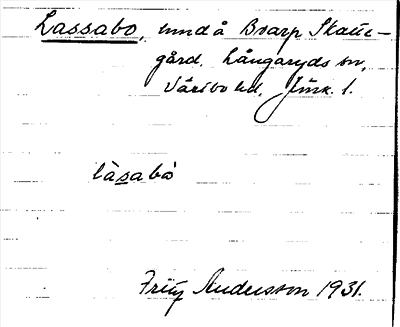 Lassabo, und å Boarp Skatte-
gård. Långaryds sn,
Västbo hd, Jönk. l.
làsabò
Fritz Andersson 1931.